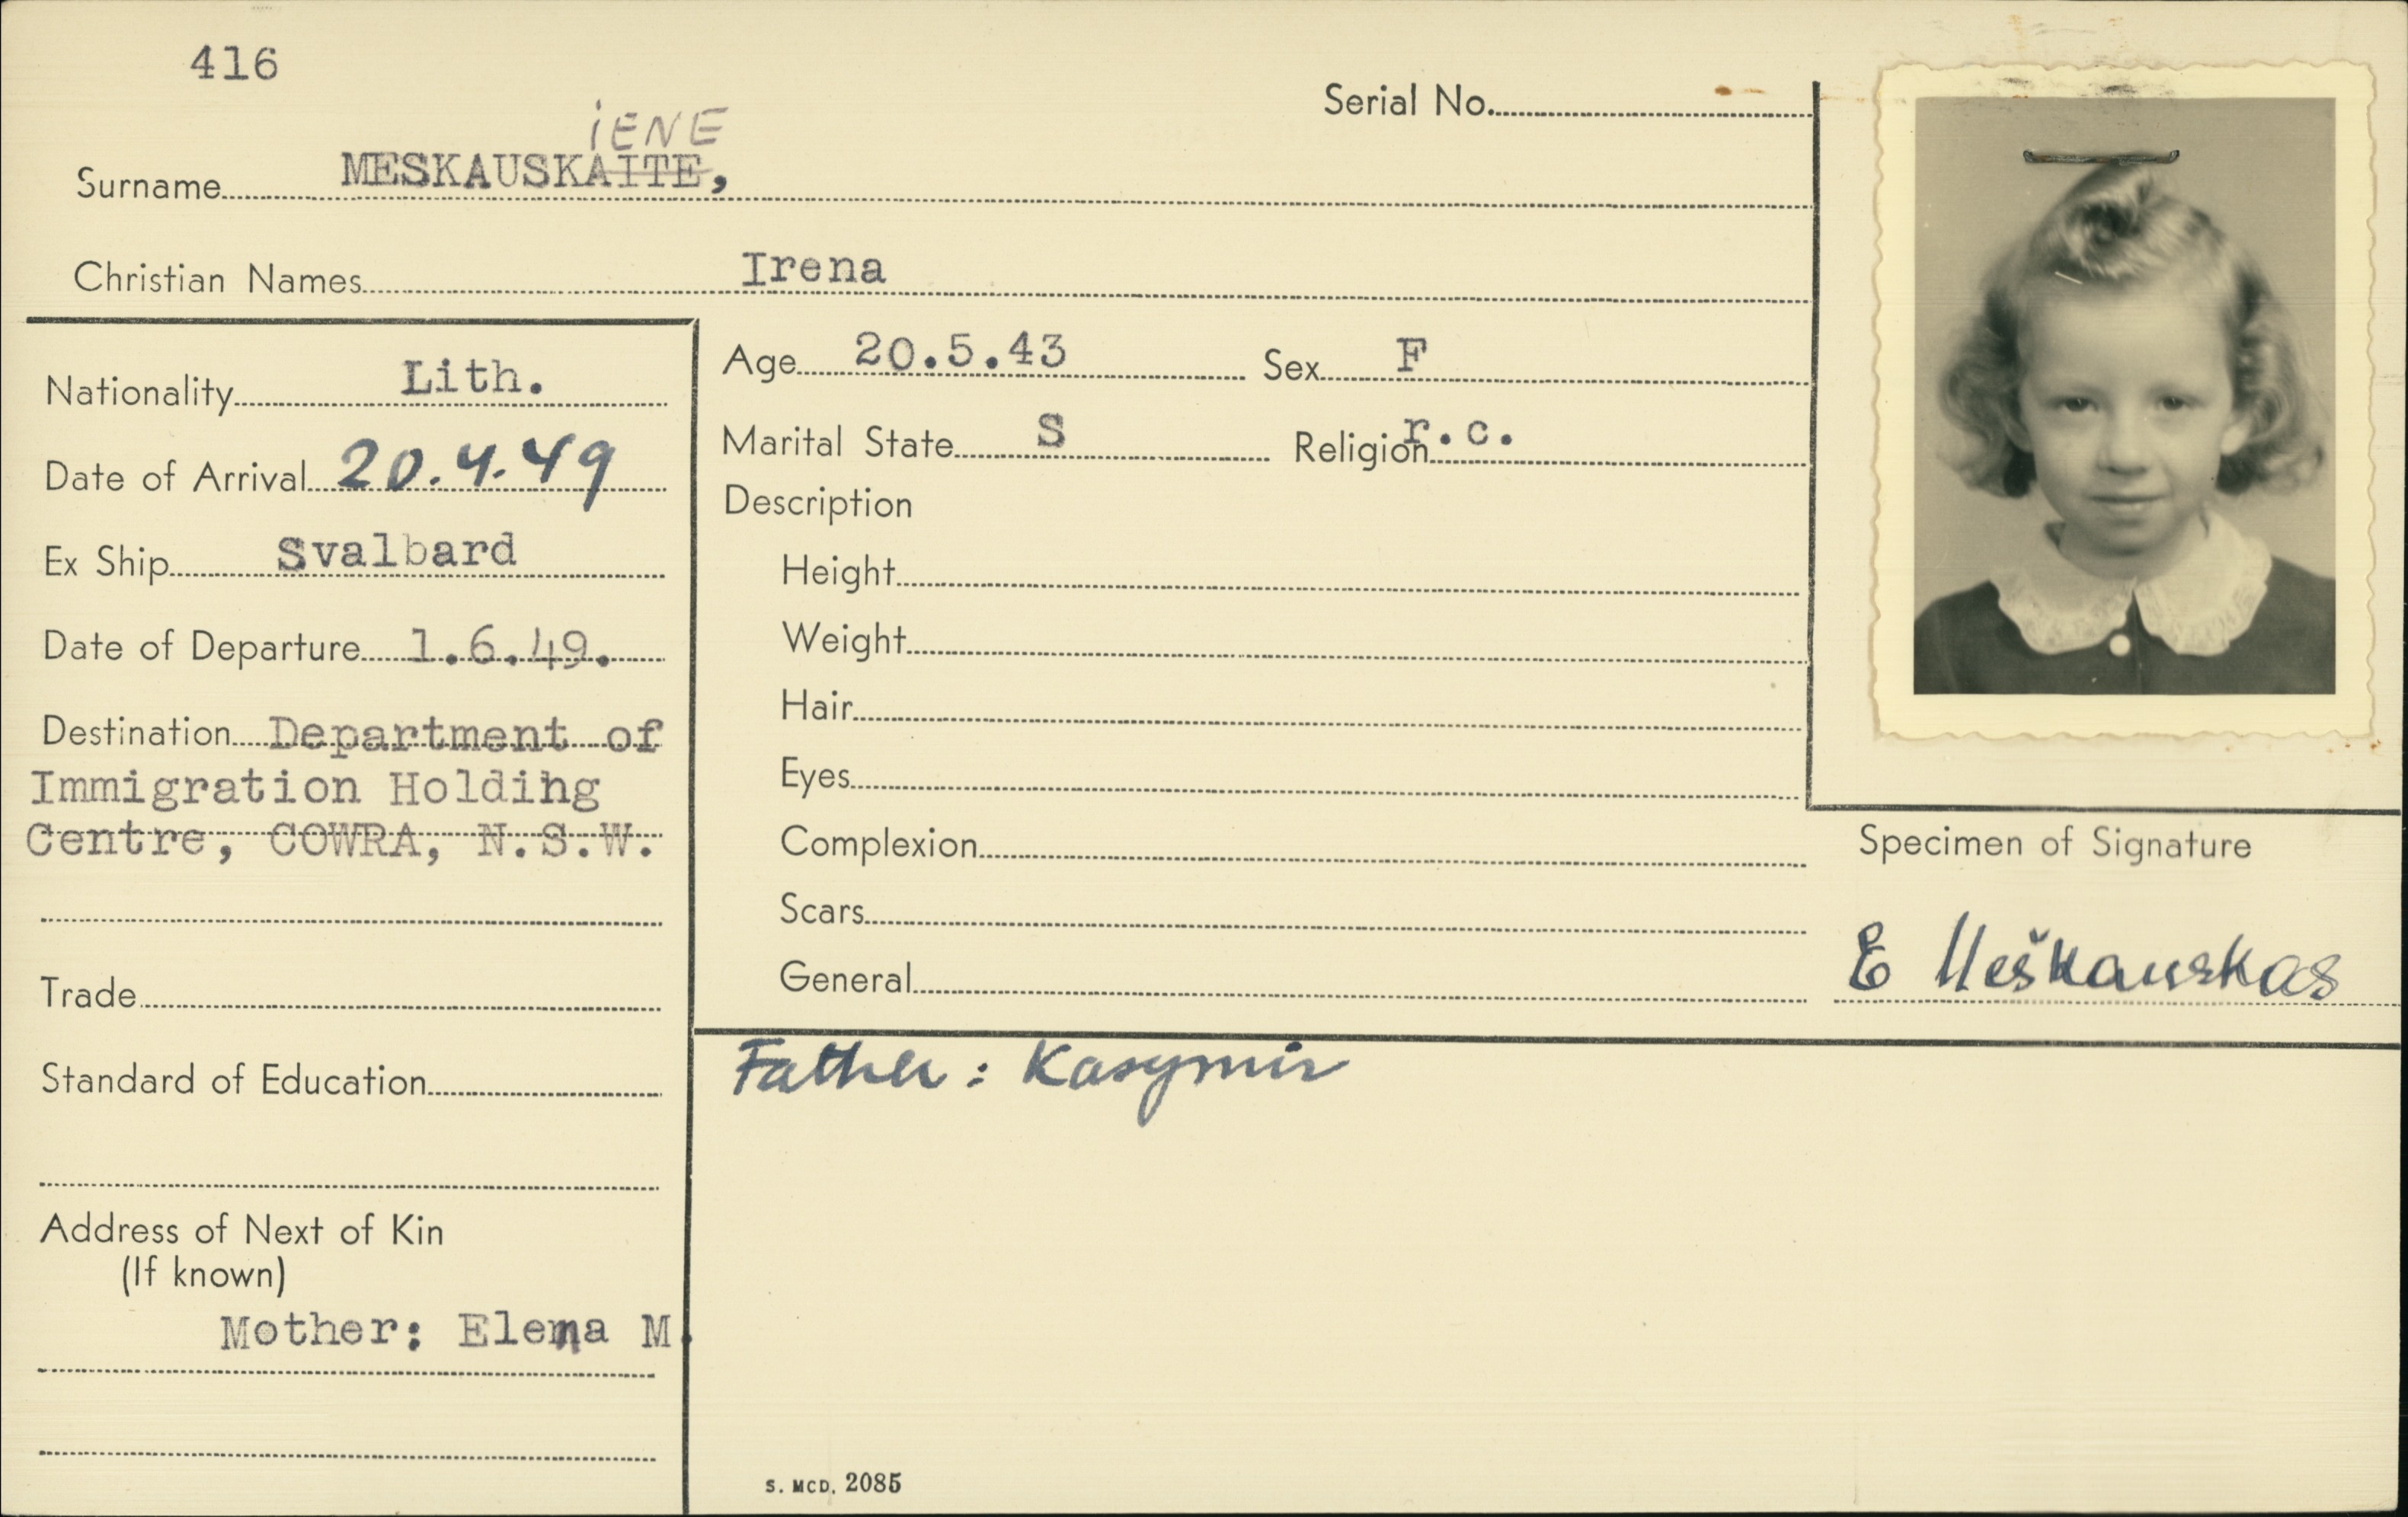 416
Serial No.
iENE
Surname MESKAUSKAITE,
Christian Names Irena
Nationality Lith.
Date of Arrival 20.4.49
Ex Ship Svalbard
Date of Departure 1.6.49.
Destination Department of
Immigration Holding
Centre, COWRA, N.S.W.
Trade
Standard of Education
Address of Next of Kin
(If known)
Mother: Elena M.
Age 20.5.43 Sex F
Marital State S Religion r.c.
Description
Height
Weight
Hair
Eyes
Complexion
Scars
General
Specimen of Signature
E Meškauskas
Father: Kasymir
S. MCD. 2085